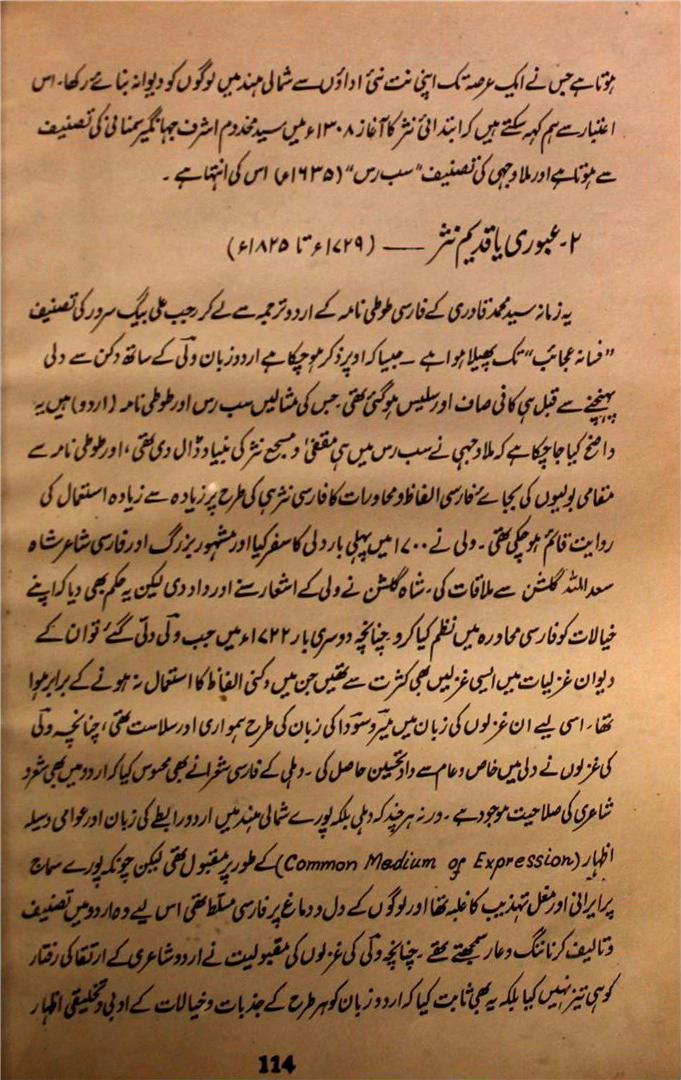 ہوتا ہے جس نے ایک عرصہ تک اپنی نت نئی اداؤں سے شمالی ہند میں لوگوں کو دیوانہ بنائے رکھا۔ اس
اعتبار سے ہم کہہ سکتے ہیں کہ ابتدائی نثر کا آغاز ۱۳۰۸ء میں سید مخدوم اشرف جہانگیر سمنانی کی تصنیف
سے ہوتا ہے اور ملا وجہی کی تصنیف "سب رس" (۱۶۳۵ء) اس کی انتہا ہے ۔
۲۔ عبوری یا قدیم نثر —— (۱۷۲۹ء تا ۱۸۲۵ء)
یہ زمانہ سید محمد قادری کے فارسی طوطی نامہ کے اردو ترجمہ سے لے کر رجب علی بیگ سرور کی تصنیف
"فسانہ عجائب" تک پھیلا ہوا ہے ۔ جیسا کہ اوپر ذکر ہو چکا ہے اردو زبان ولی کے ساتھ دکن سے دلی
پہنچنے سے قبل ہی کافی صاف اور سلیس ہو گئی تھی۔ جس کی مثالیں سب رس اور طوطی نامہ (اردو) ہیں یہ
واضح کیا جا چکا ہے کہ ملا وجہی نے سب رس میں ہی مقفیٰ و مسجع نثر کی بنیاد ڈال دی تھی، اور طوطی نامہ سے
مقامی بولیوں کی بجائے فارسی الفاظ و محاورات کا فارسی نثر ہی کی طرح پر زیادہ سے زیادہ استعمال کی
روایت قائم ہو چکی تھی ۔ ولی نے ۱۷۰۰ میں پہلی بار دلی کا سفر کیا اور مشہور بزرگ اور فارسی شاعر شاہ
سعد اللہ گلشن سے ملاقات کی۔ شاہ گلشن نے ولی کے اشعار سنے اور داد دی لیکن یہ حکم بھی دیا کہ اپنے
خیالات کو فارسی محاورہ میں نظم کیا کرو۔ چنانچہ دوسری بار ۱۷۲۲ء میں جب ولی دلی گئے تو ان کے
دیوان غزلیات میں ایسی غزلیں بھی کثرت سے تھیں جن میں دکنی الفاظ کا استعمال نہ ہونے کے برابر ہوا
تھا۔ اسی لیے ان غزلوں کی زبان میں میر و سودا کی زبان کی طرح ہمواری اور سلاست تھی، چنانچہ ولی
کی غزلوں نے دلی میں خاص و عام سے داد تحسین حاصل کی ۔ دہلی کے فارسی شعرا نے بھی محسوس کیا کہ اردو میں بھی شعر و
شاعری کی صلاحیت موجود ہے ۔ ورنہ ہر چند کہ دہلی بلکہ پورے شمالی ہند میں اردو رابطے کی زبان اور عوامی وسیلہ
اظہار (Common Medium of Expression) کے طور پر مقبول تھی لیکن چونکہ پورے سماج
پر ایرانی اور مغل تہذیب کا غلبہ تھا اور لوگوں کے دل و دماغ پر فارسی مسلط تھی اس لیے وہ اردو میں تصنیف
و تالیف کرنا ننگ و عار سمجھتے تھے ۔ چنانچہ ولی کی غزلوں کی مقبولیت نے اردو شاعری کے ارتقا کی رفتار
کو ہی تیز نہیں کیا بلکہ یہ بھی ثابت کیا کہ اردو زبان کو ہر طرح کے جذبات و خیالات کے ادبی و تخلیقی اظہار
114